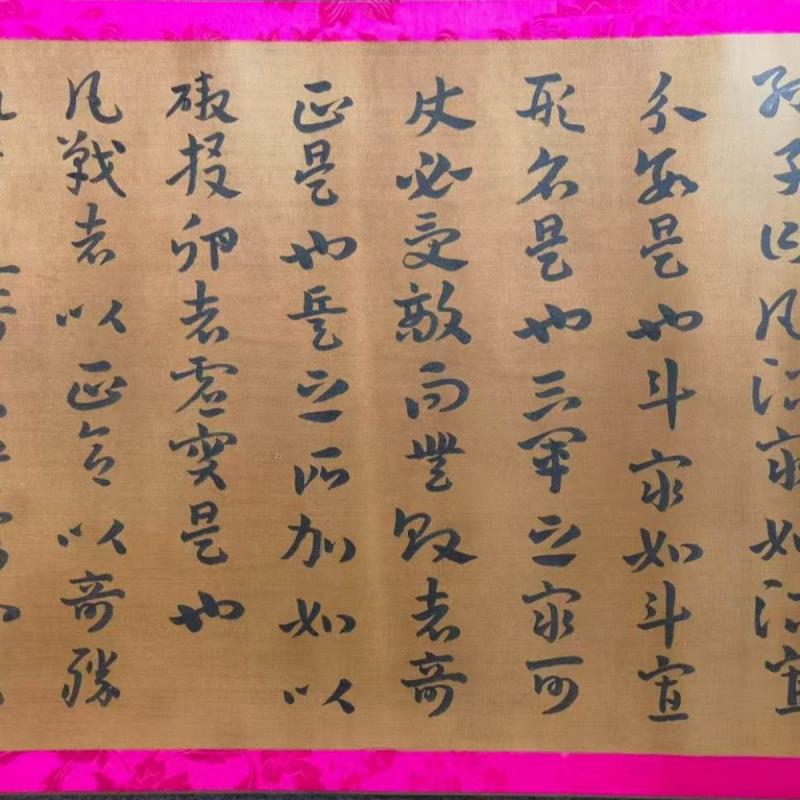 孫子曰凡治衆如治寡
分數是也斗衆如斗寡
形名是也三軍之衆可
使必受敵而無敗者奇
正是也兵之所加如以
碫投卵者虛實是也
凡戰者以正合以奇勝